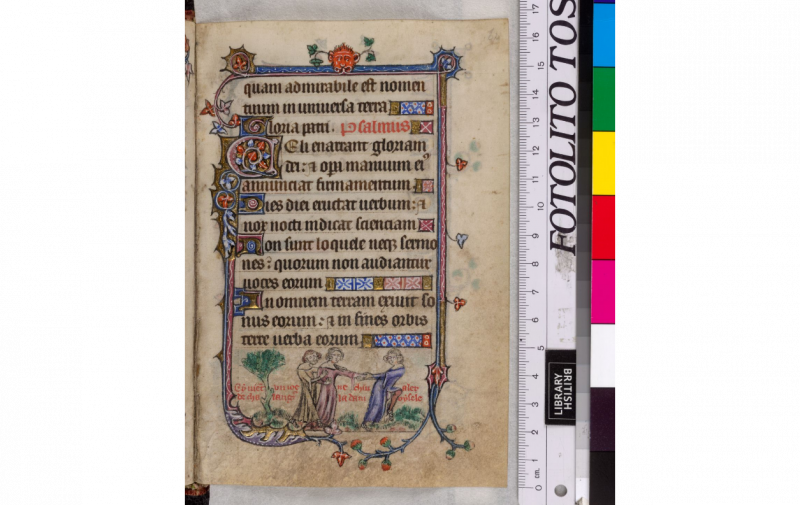 quam admirabile est nomen
tuum in universa terra
Gloria patri. Psalmus
Celi enarrant gloriam
dei: & opa manuum ei
annunciat firmamentum
Dies diei eructat uerbum: &
nox nocti indicat scienciam
Non sunt loquele neq sermo
nes: quorum non audiantur
uoces eorum
In omnem terram exiuit so
nus eorum: & in fines orbis
terre uerba eorum
FOTOLITO TOS
BRITISH
LIBRARY
17
16
15
14
13
12
11
10
9
8
7
6
5
4
3
2
1
0 cm.